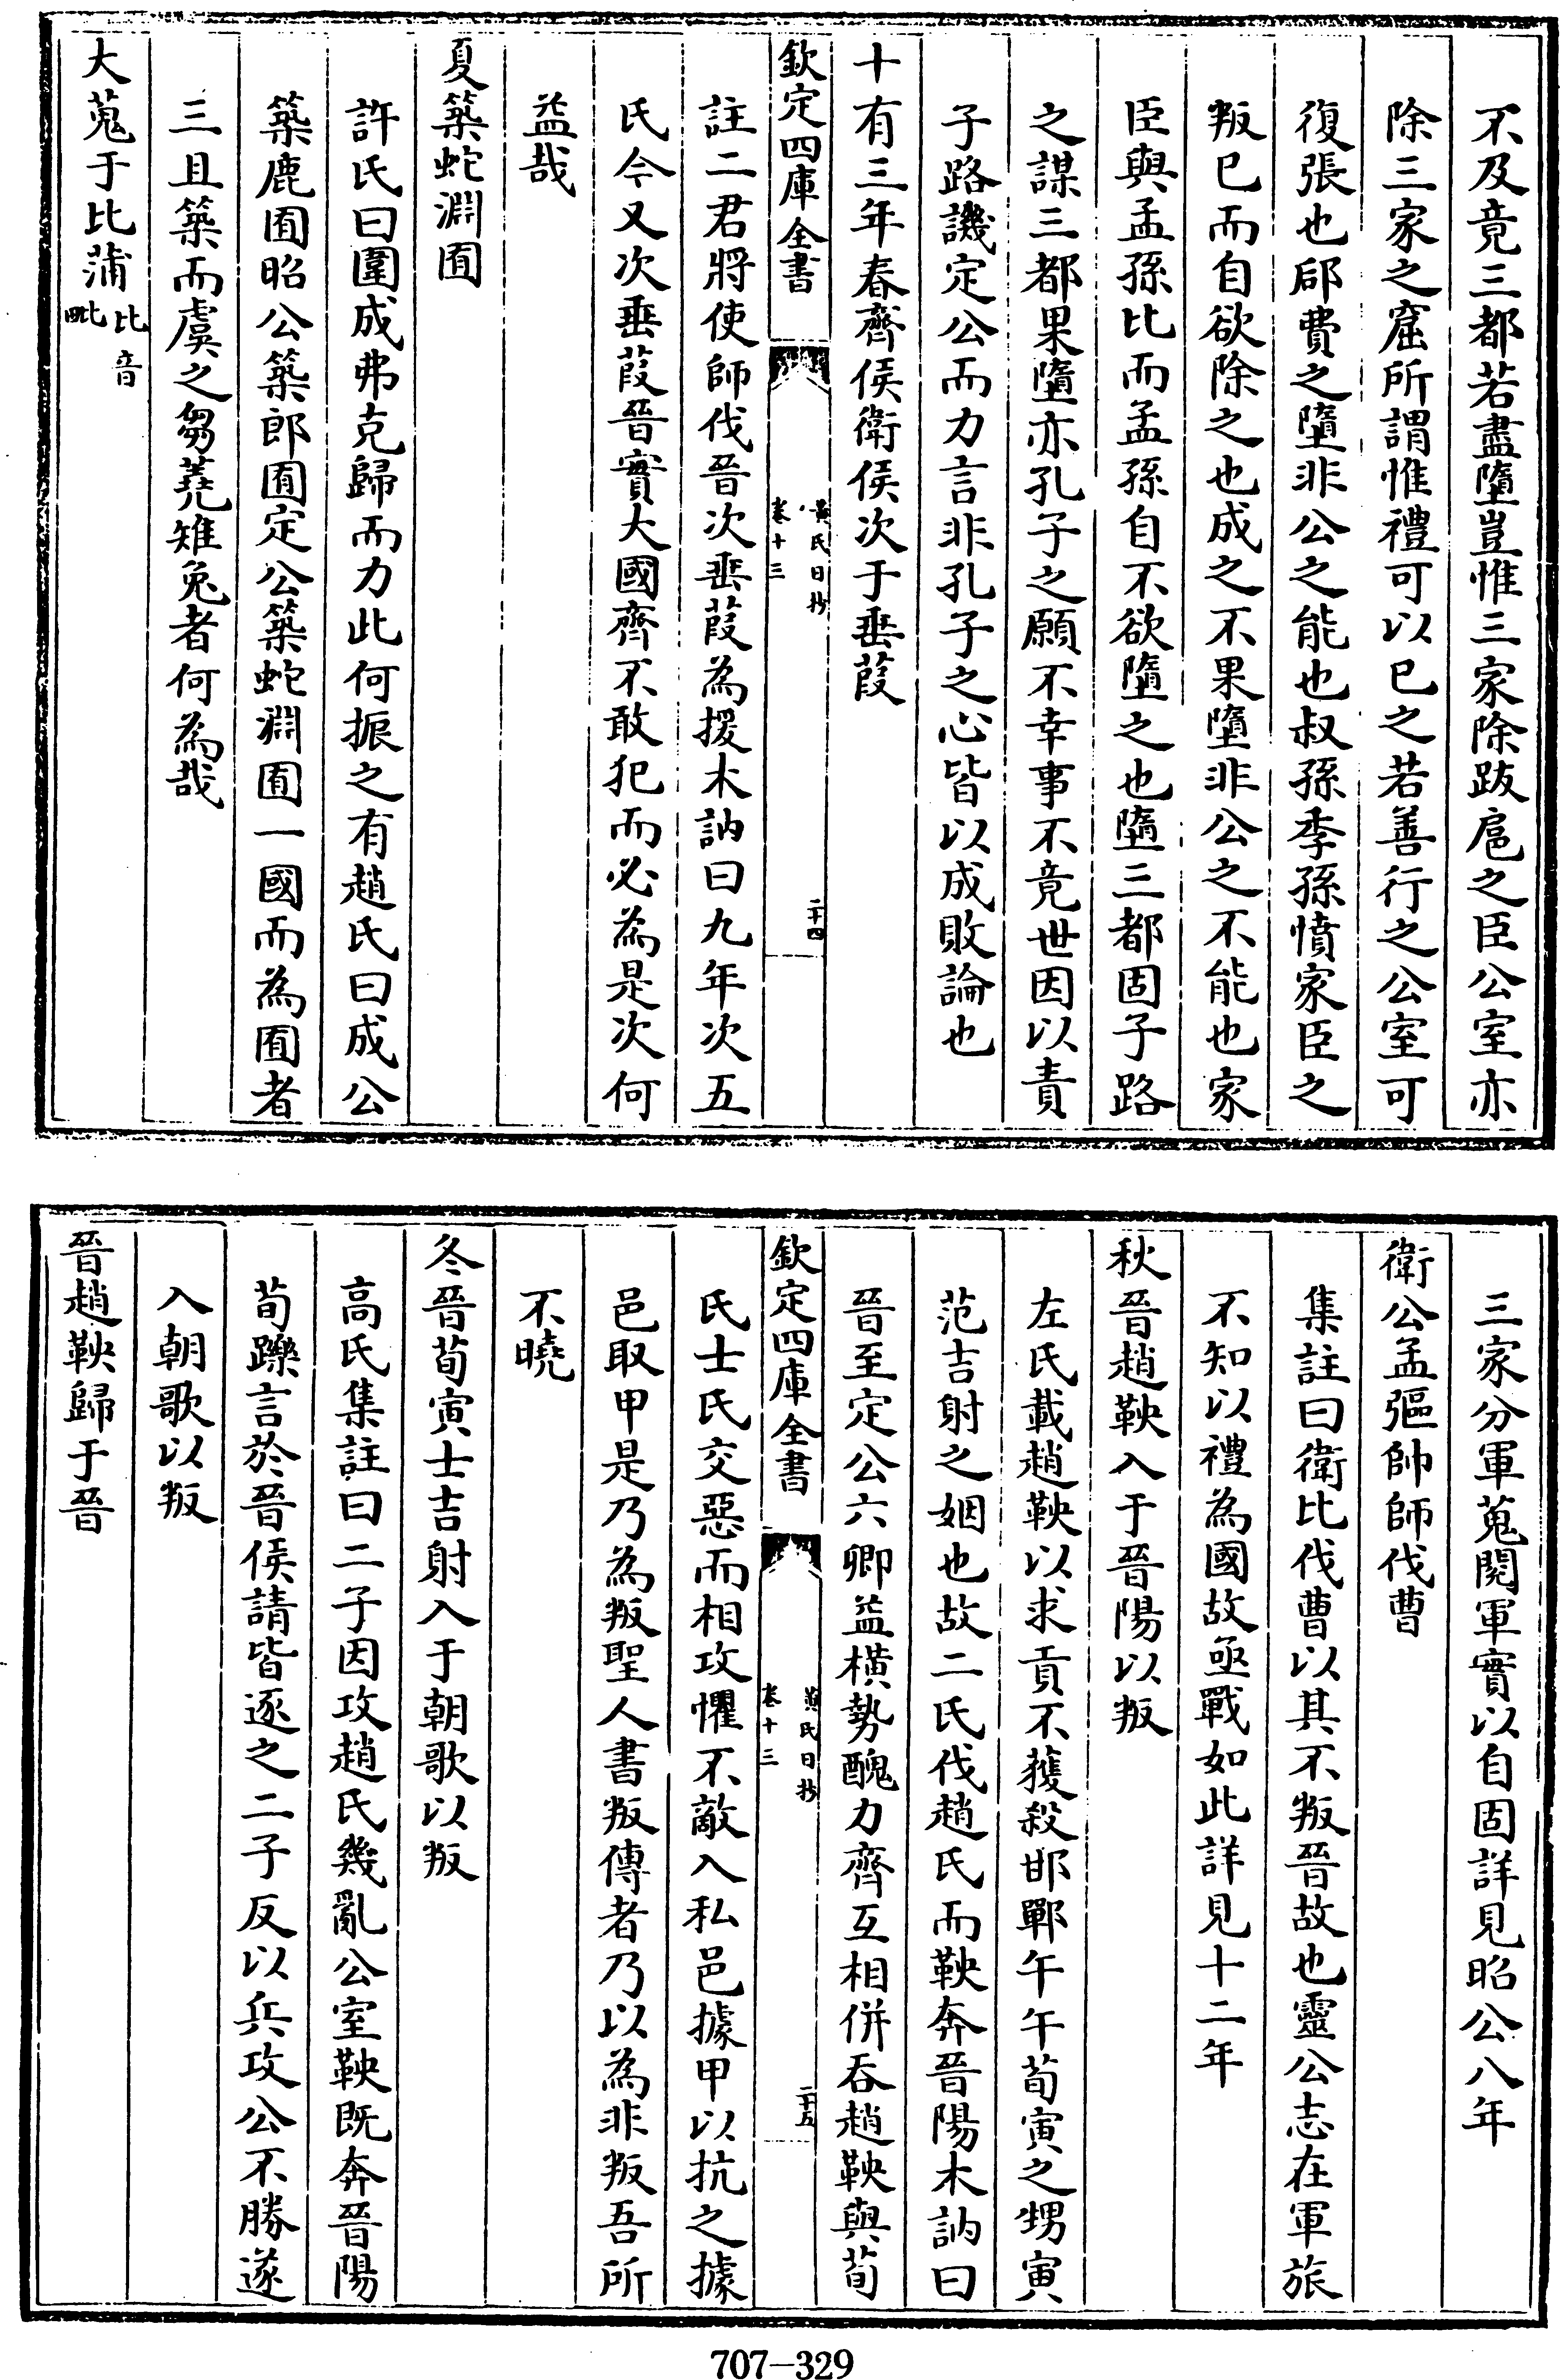 不及竟三都若盡墮豈惟三家除跋扈之臣公室亦
除三家之窟所謂惟禮可以已之若善行之公室可
復張也郈費之墮非公之能也叔孫季孫憤家臣之
叛已而自欲除之也成之不果墮非公之不能也家
臣與孟孫比而孟孫自不欲墮之也墮三都固子路
之謀三都果墮亦孔子之願不幸事不竟世因以責
子路譏定公而力言非孔子之心皆以成敗論也
十有三年春齊侯衛侯次于垂葭
欽定四庫全書
黃氏日抄
卷十三
二十四
註二君將使師伐晉次垂葭為援木訥曰九年次五
氏今又次垂葭晉實大國齊不敢犯而必為是次何
益哉
夏築蛇淵囿
許氏曰圍成弗克歸而力此何振之有趙氏曰成公
築鹿囿昭公築郎囿定公築蛇淵囿一國而為囿者
三且築而虞之芻蕘雉兔者何為哉
大蒐于比蒲
比音
毗
三家分軍蒐閱軍實以自固詳見昭公八年
衛公孟彄帥師伐曹
集註曰衛比伐曹以其不叛晉故也靈公志在軍旅
不知以禮為國故亟戰如此詳見十二年
秋晉趙鞅入于晉陽以叛
左氏載趙鞅以求貢不獲殺邯鄲午午荀寅之甥寅
范吉射之姻也故二氏伐趙氏而鞅奔晉陽木訥曰
晉至定公六卿益橫勢醜力齊互相併吞趙鞅與荀
欽定四庫全書
黃氏日抄
卷十三
二十五
氏士氏交惡而相攻懼不敵入私邑據甲以抗之據
邑取甲是乃為叛聖人書叛傳者乃以為非叛吾所
不曉
冬晉荀寅士吉射入于朝歌以叛
高氏集註曰二子因攻趙氏幾亂公室鞅既奔晉陽
荀躒言於晉侯請皆逐之二子反以兵攻公不勝遂
入朝歌以叛
晉趙鞅歸于晉
707-329